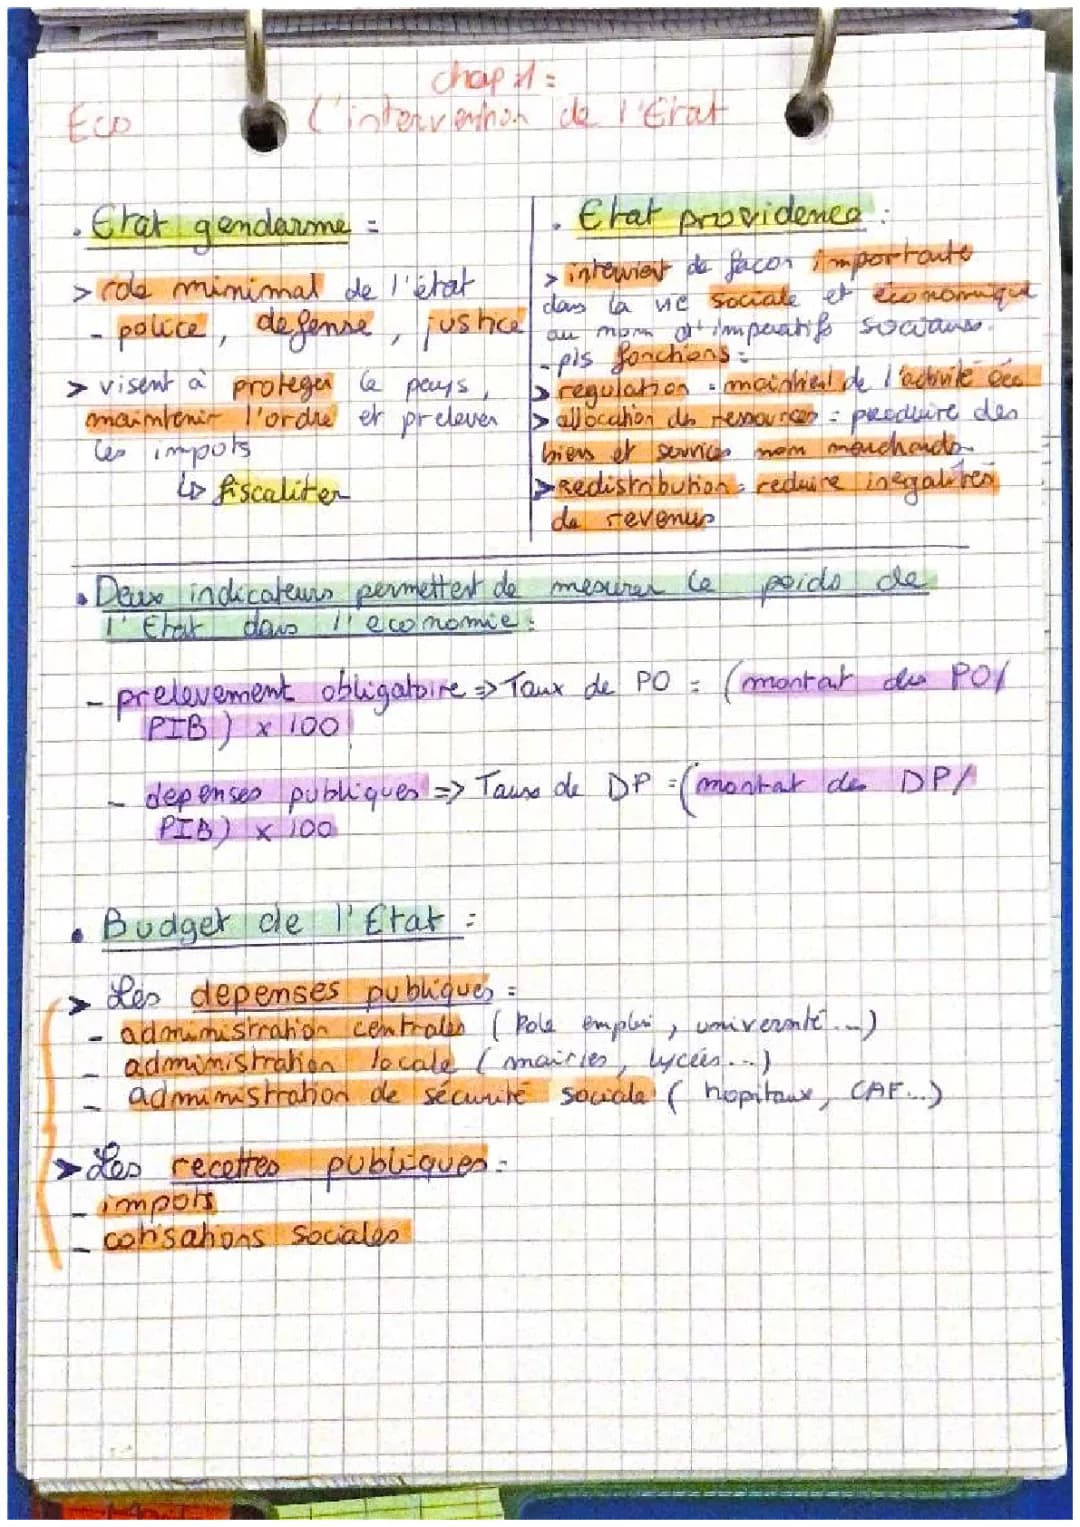 chap 1 :
Eco
l'intervention de l'Etat
. Etat gendarme :
> role minimal de l'état
- police, defense, justice
> visent à proteger le pays,
maintenir l'ordre et prelever
les impots
↳ fiscaliter
. Etat providence :
> intervient de façon importante
dans la vie sociale et économique
au nom d'imperatifs sociaux.
- pls fonctions :
> regulation : maintient de l'activité éco
> allocation des ressources : produire des
biens et services non marchands
> Redistribution : reduire inégalités
de revenus
• Deux indicateurs permettent de mesurer le poids de
l'Etat dans l'economie :
- prelevement obligatoire => Taux de PO = (montat des PO/
PIB) x 100
- depenses publiques => Taux de DP = (montat des DP/
PIB) x 100
• Budget de l'Etat :
> Les depenses publiques :
- administration centrales (Pole emploi, université...)
- administration locale (mairies, lycées...)
- administration de sécurité sociale (hopitaux, CAF...)
> Les recettes publiques :
- impots
- cotisations sociales